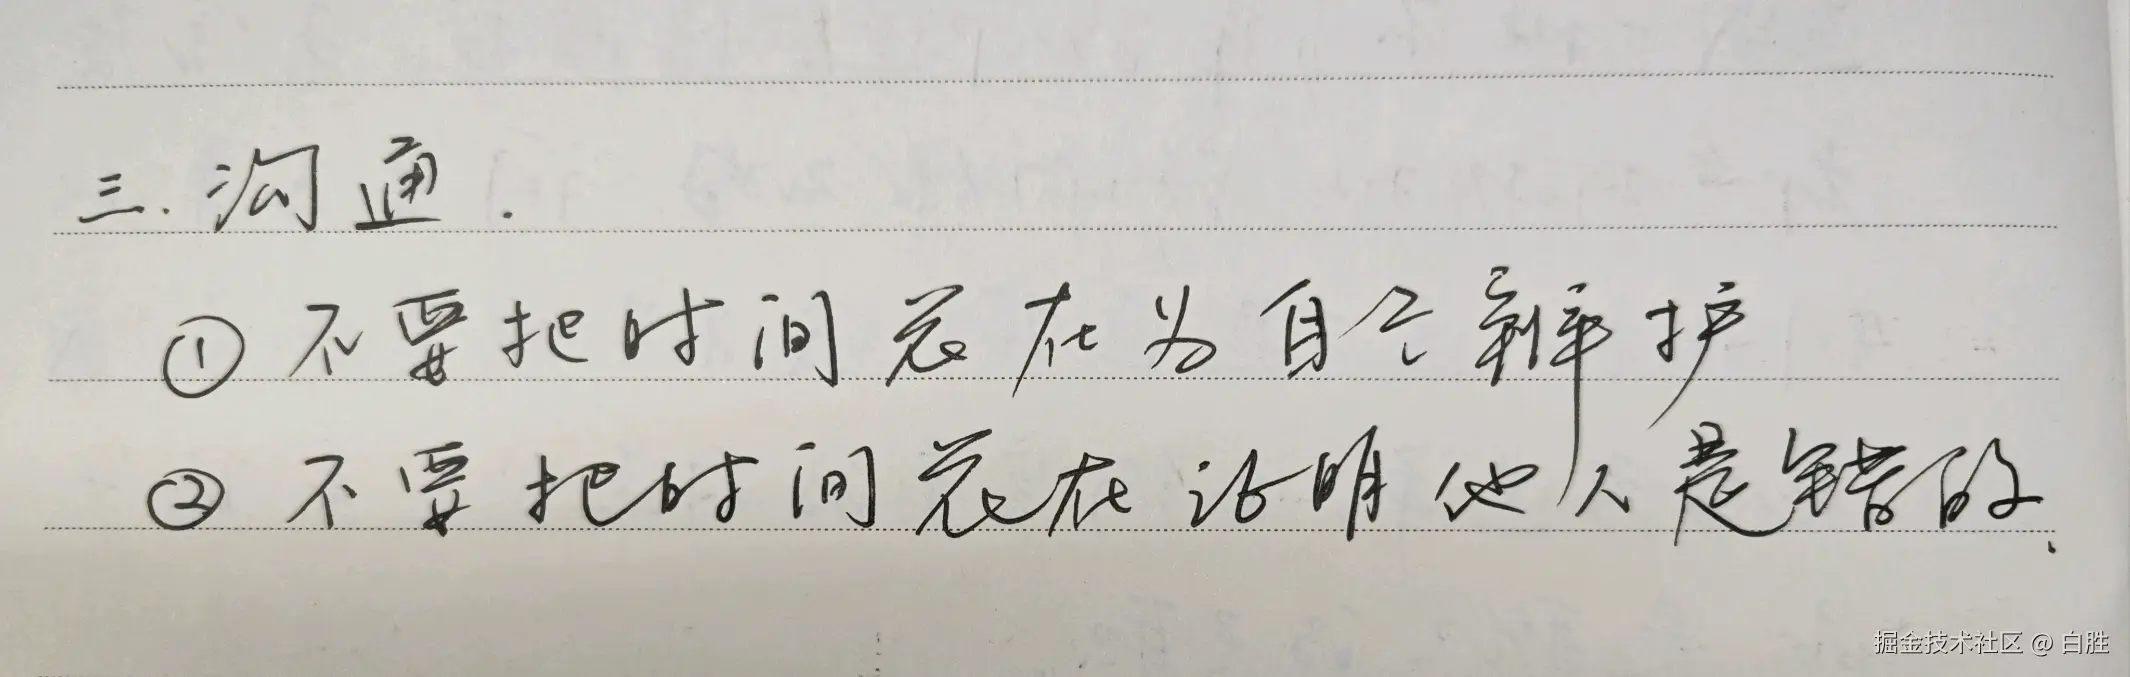 三.沟通.
①不要把时间花在为自己辩护
②不要把时间花在证明他人是错的.
掘金技术社区 @ 白胜